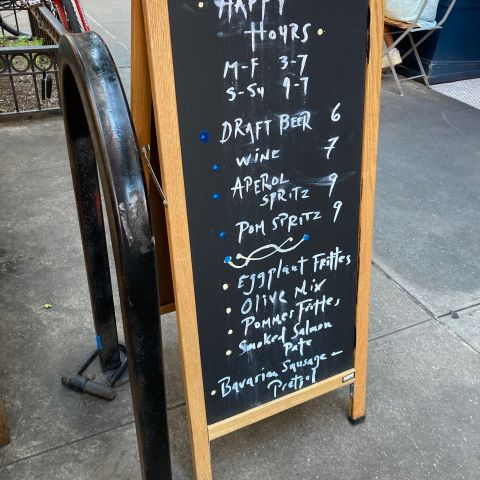 HAPPY
HOURS
M-F 3-7
S-SU 9-7
DRAFT BEER 6
WINE 7
APEROL
SPRITZ 9
POM SPRITZ 9
Eggplant Frittes
Olive Mix
Pommes Frittes
Smoked Salmon
Pate
Bavarian Sausage
Pretzel